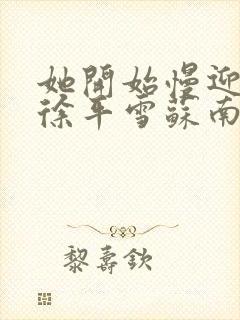 她開始慢迎
徐平雪蘇南
黎壽欽